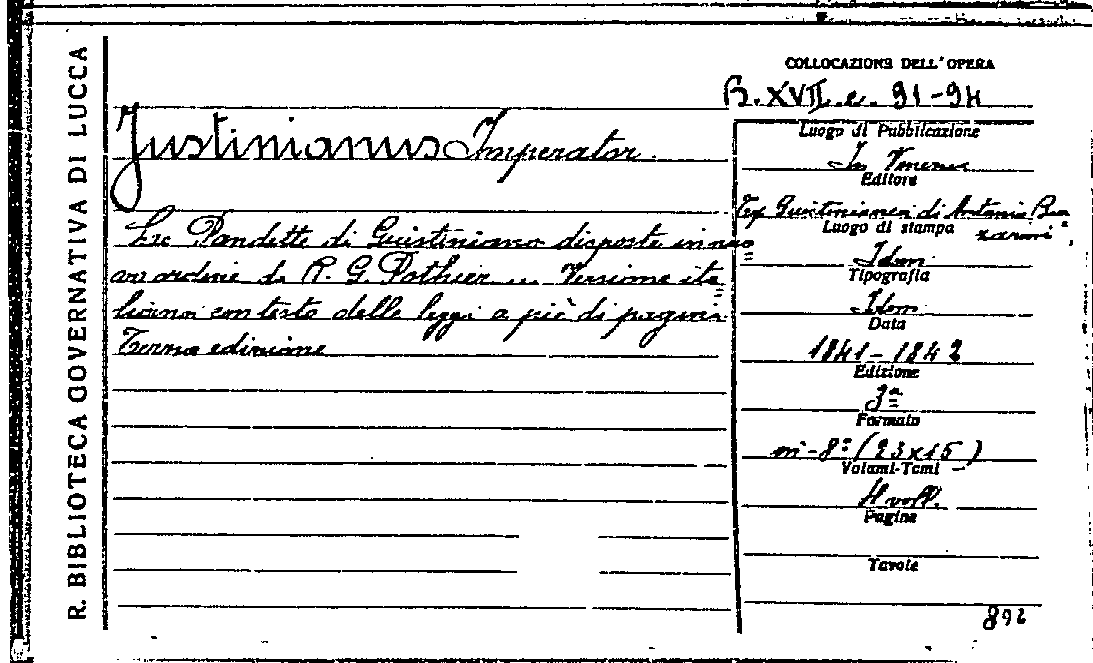 R. BIBLIOTECA GOVERNATIVA DI LUCCA
COLLOCAZIONE DELL'OPERA
B. XVII. e. 91-94
Justinianus Imperator.
Le Pandette di Giustiniano disposte in nuo
vo ordine da R. G. Pothier ... Versione ita
liana con testo delle leggi a piè di pagina
Terza edizione
Luogo di Pubblicazione
In Venezia
Editore
Tip. Giustinianea di Antonio Baz
zarini
Luogo di stampa
Idem
Tipografia
Idem
Data
1841-1842
Edizione
3ª
Formato
in-8° (23x15)
Volumi-Tomi
4 voll.
Pagine
Tavole
892